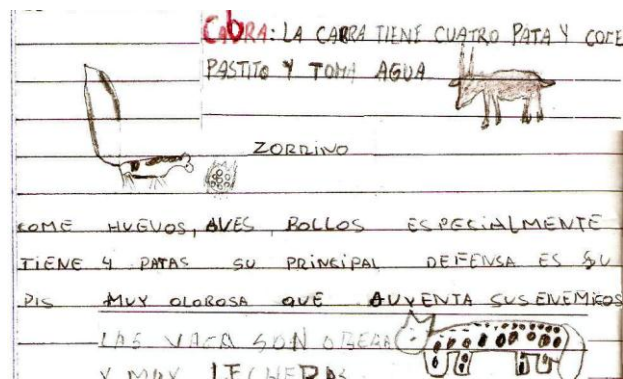 CabRA: LA CABRA TIENE CUATRO PATA Y COME
PASTITO Y TOMA AGUA
ZORRINO
COME HUEVOS, AVES, POLLOS ESPECIALMENTE
TIENE 4 PATAS SU PRINCIPAL DEFENSA ES SU
PIS MUY OLOROSA QUE AUYENTA SUS ENEMIGOS
LAS VACA SON OBERA
Y MUY LECHERAS